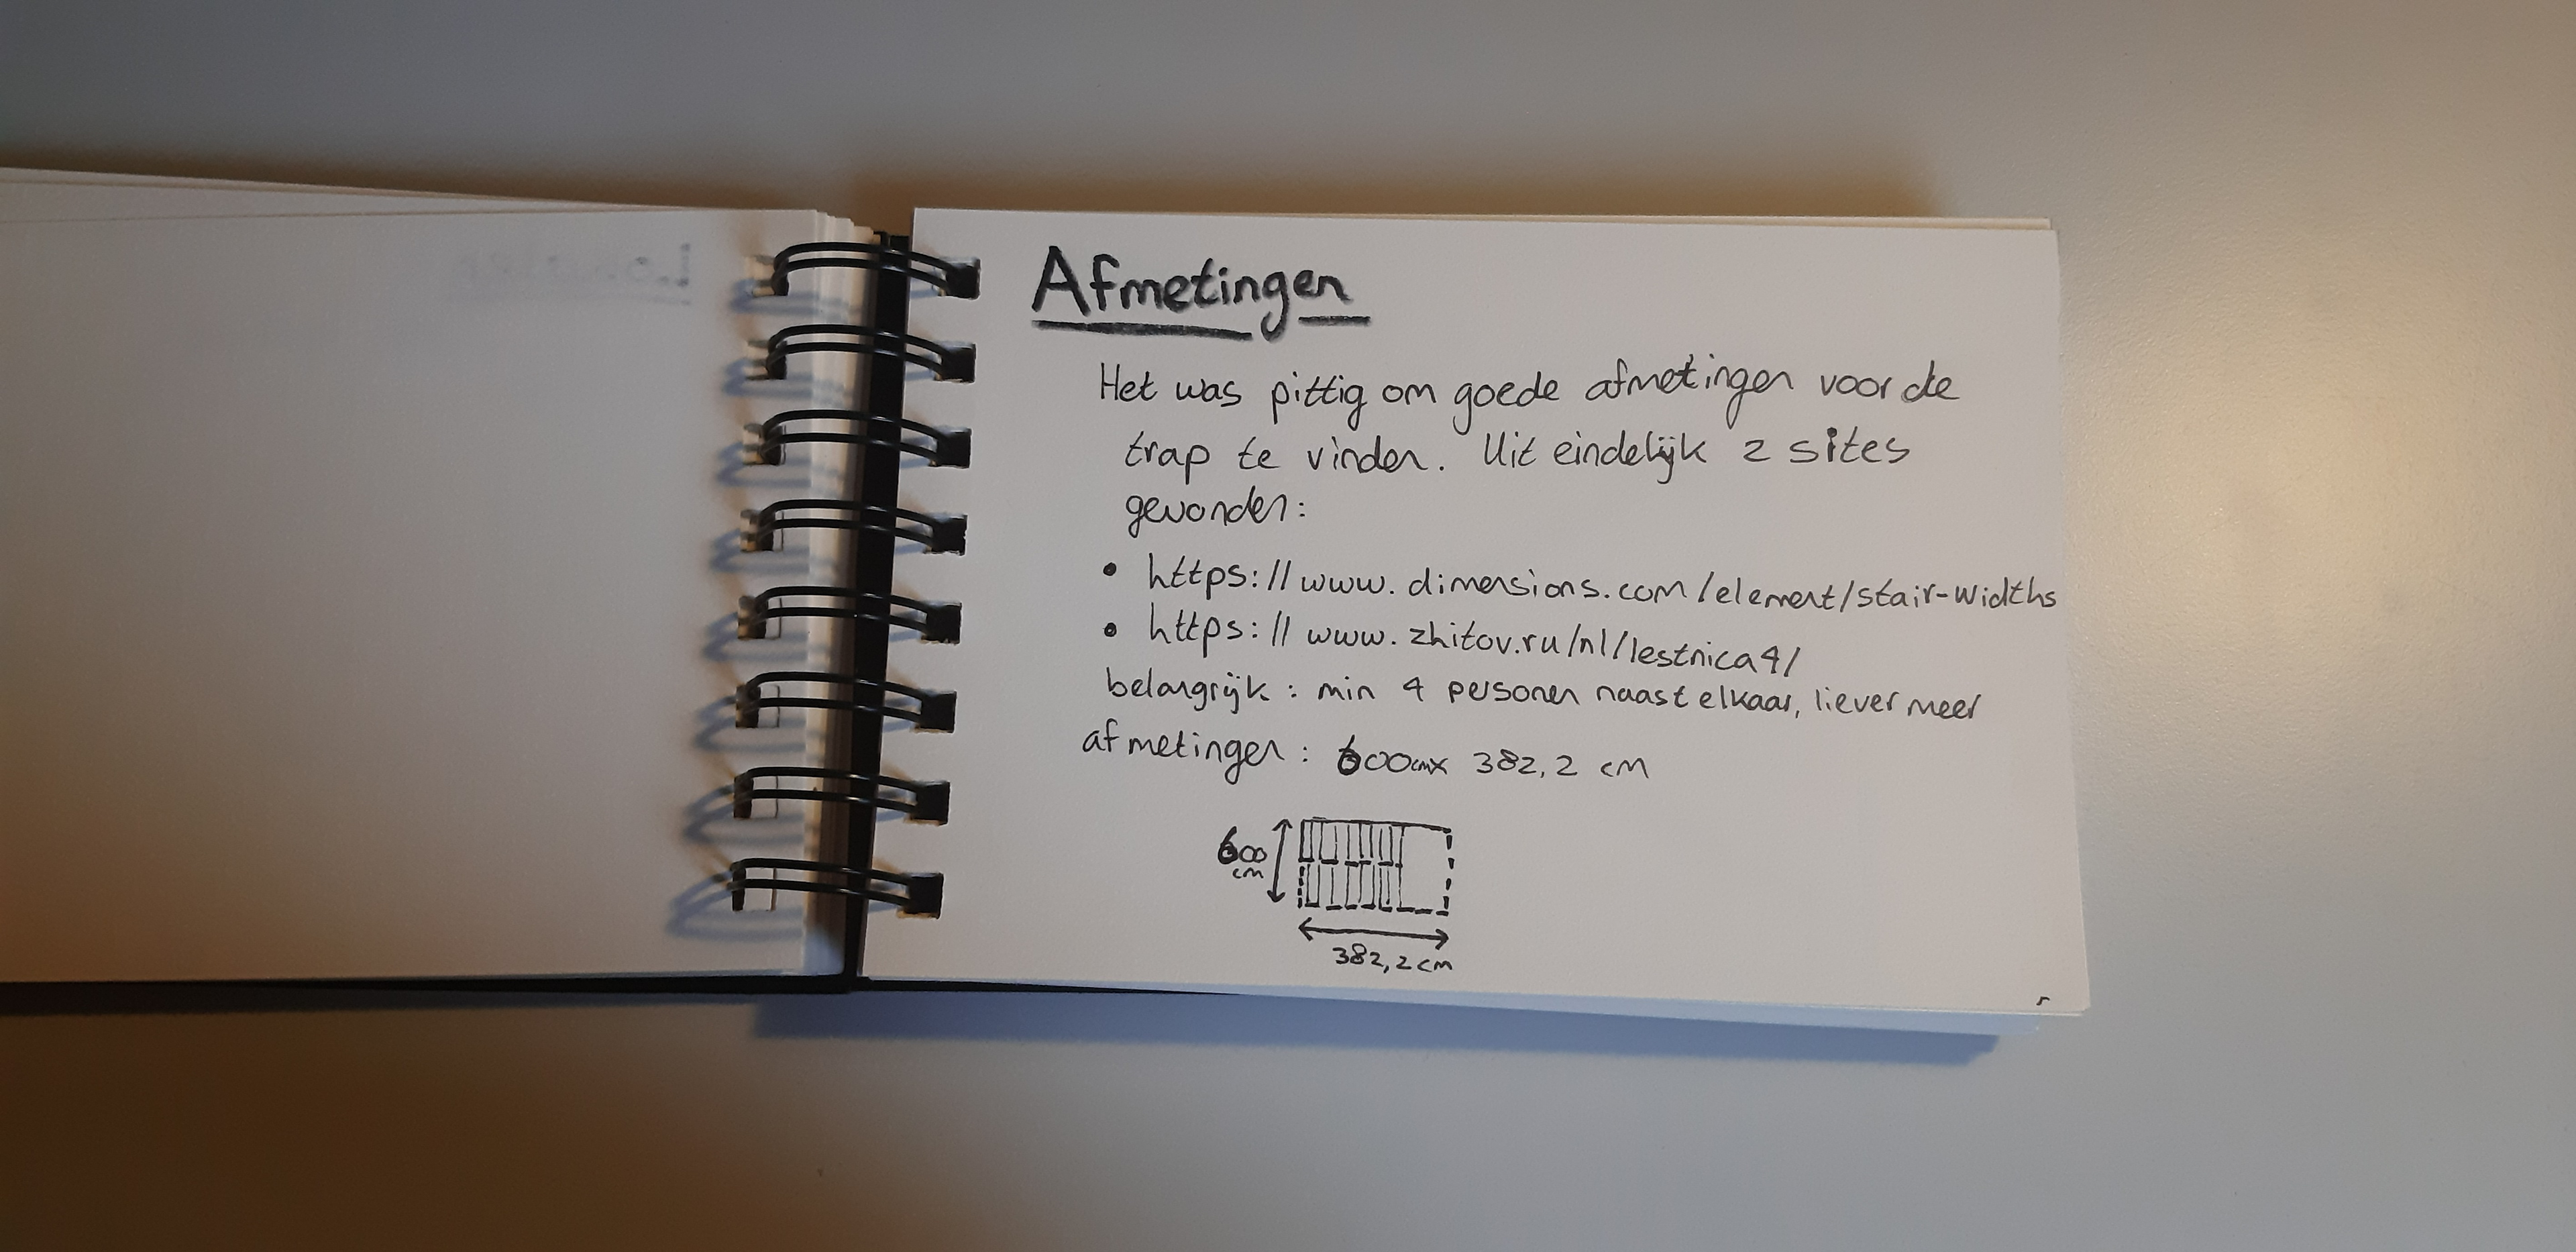 Afmetingen
Het was pittig om goede afmetingen voor de
trap te vinden. Uit eindelijk 2 sites
gevonden:
• https://www.dimensions.com/element/stair-widths
• https://www.zhitov.ru/nl/lestnica4/
belangrijk: min 4 personen naast elkaar, liever meer
afmetingen: 600cm x 382,2 cm
600
cm
382,2 cm